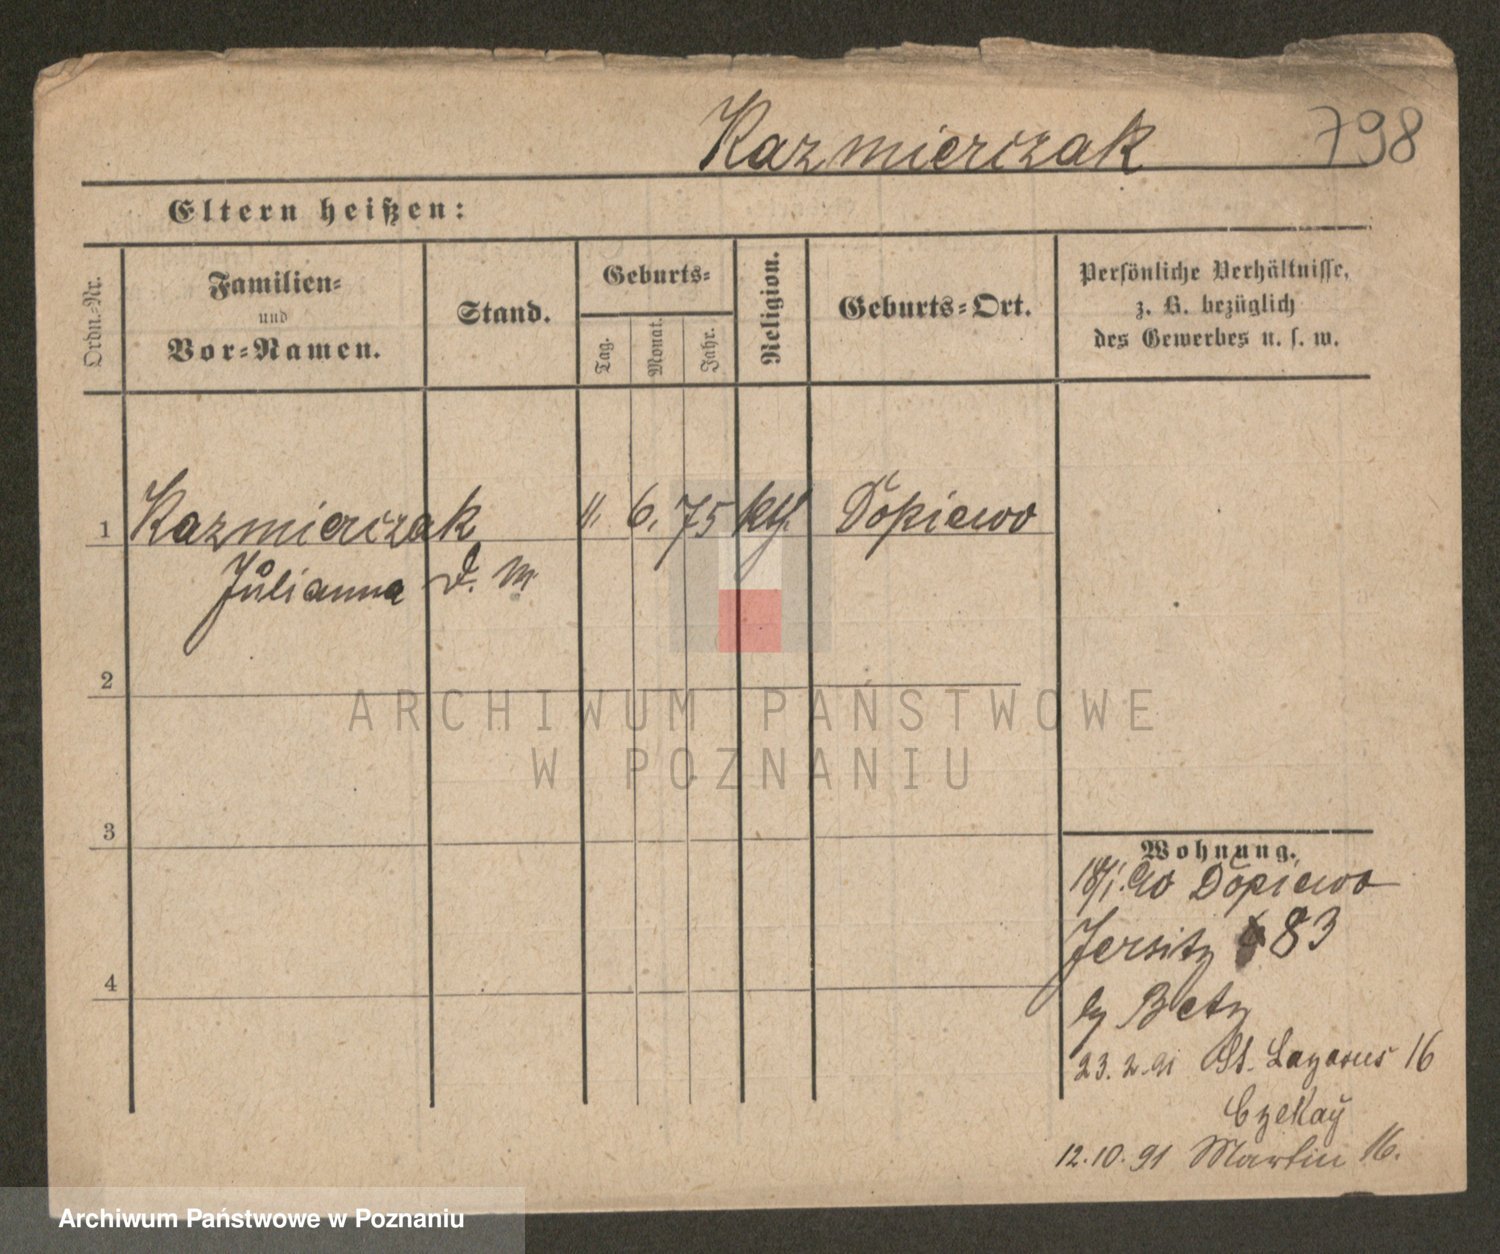 Kazmierczak 798
Eltern heißen:
Ordn.-Nr.
Familien-
und
Vor-Namen.
Stand.
Geburts-
Tag.
Monat.
Jahr.
Religion.
Geburts-Ort.
Persönliche Verhältnisse,
z. B. bezüglich
des Gewerbes u. s. w.
1 Kazmierczak 11. 6. 75 kth. Dopiewo
Julianna D. M
2
3
4
Wohnung.
18/1. 90 Dopiewo
Jersitz 83
by Betz
23. 2. 91 St. Lazarus 16
Czekay
12. 10. 91 Martin 16.
ARCHIWUM PAŃSTWOWE
W POZNANIU
Archiwum Państwowe w Poznaniu